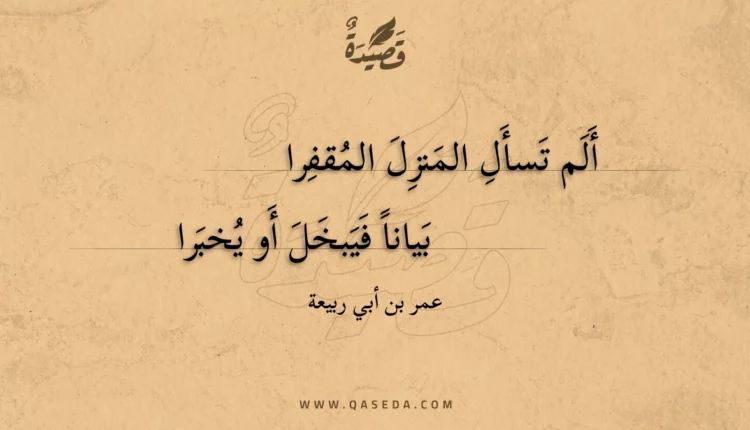 قَصِيدَةٌ
أَلَم تَسأَلِ المَنزِلَ المُقفِرا
بَياناً فَيَبخَلَ أَو يُخبَرا
عمر بن أبي ربيعة
WWW.QASEDA.COM